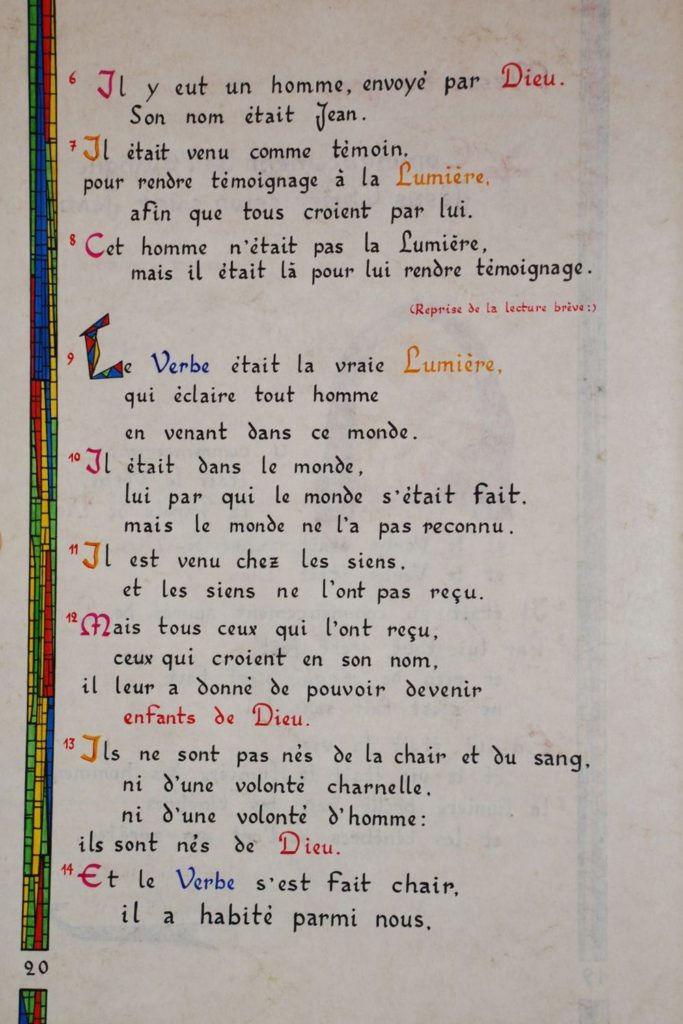 6 Il y eut un homme, envoyé par Dieu.
Son nom était Jean.
7 Il était venu comme témoin,
pour rendre témoignage à la Lumière,
afin que tous croient par lui.
8 Cet homme n'était pas la Lumière,
mais il était là pour lui rendre témoignage.
(Reprise de la lecture brève:)
9 Le Verbe était la vraie Lumière,
qui éclaire tout homme
en venant dans ce monde.
10 Il était dans le monde,
lui par qui le monde s'était fait,
mais le monde ne l'a pas reconnu.
11 Il est venu chez les siens,
et les siens ne l'ont pas reçu.
12 Mais tous ceux qui l'ont reçu,
ceux qui croient en son nom,
il leur a donné de pouvoir devenir
enfants de Dieu.
13 Ils ne sont pas nés de la chair et du sang,
ni d'une volonté charnelle,
ni d'une volonté d'homme:
ils sont nés de Dieu.
14 Et le Verbe s'est fait chair,
il a habité parmi nous,
20